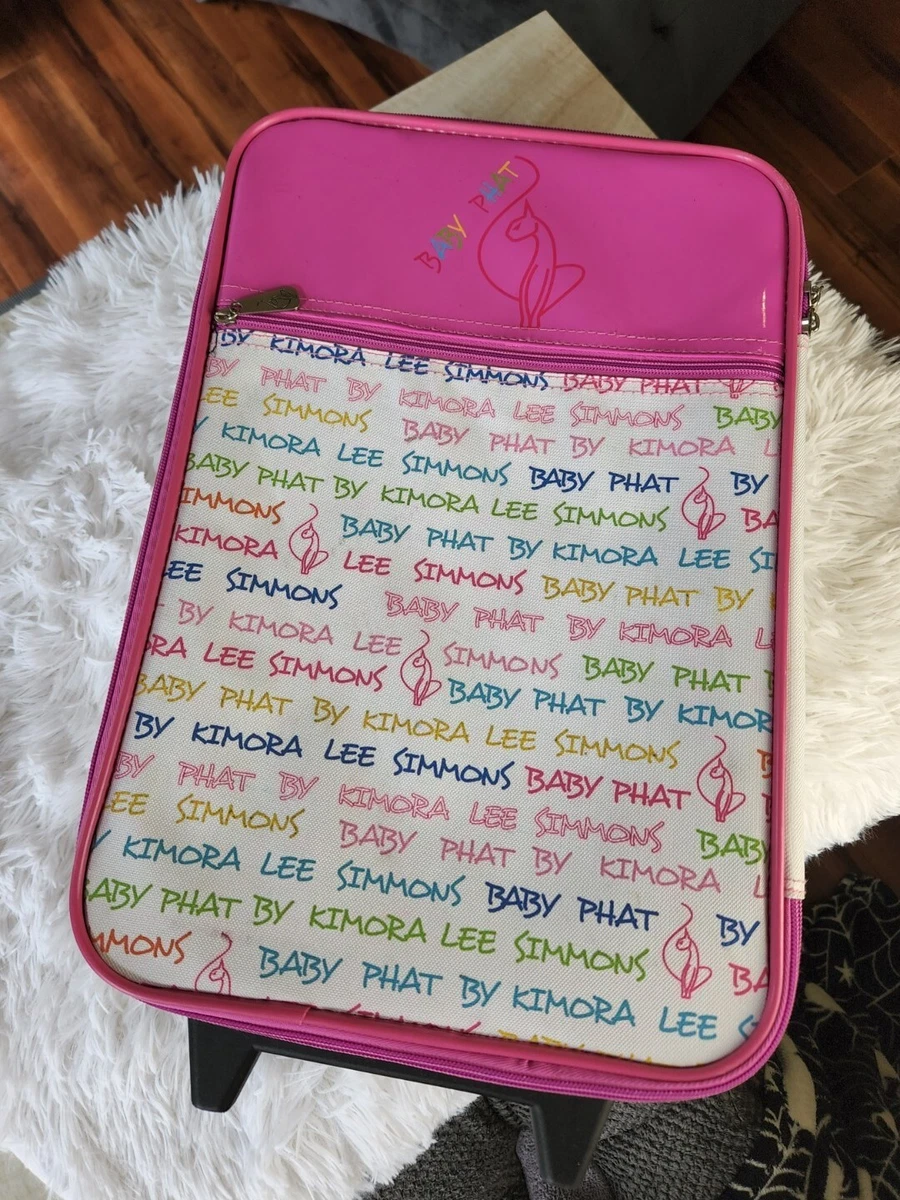 BABY PHAT
BY KIMORA LEE SIMMONS BABY PHAT
BY PHAT BY KIMORA LEE SIMMONS BABY
LEE SIMMONS BABY PHAT BY KIMORA L
Y KIMORA LEE SIMMONS BABY PHAT BY
BABY PHAT BY KIMORA LEE SIMMONS BA
IMMONS BABY PHAT BY KIMORA LEE SI
KIMORA LEE SIMMONS BABY PHAT BY
LEE SIMMONS BABY PHAT BY KIMORA L
BY KIMORA LEE SIMMONS BABY PHAT
RA LEE SIMMONS BABY PHAT BY KIMOR
BABY PHAT BY KIMORA LEE SIMMONS B
BY KIMORA LEE SIMMONS BABY PHAT
BY PHAT BY KIMORA LEE SIMMONS BABY
EE SIMMONS BABY PHAT BY KIMORA L
Y KIMORA LEE SIMMONS BABY PHAT BY
BABY PHAT BY KIMORA LEE SIMMONS BA
MMONS BABY PHAT BY KIMORA LEE S